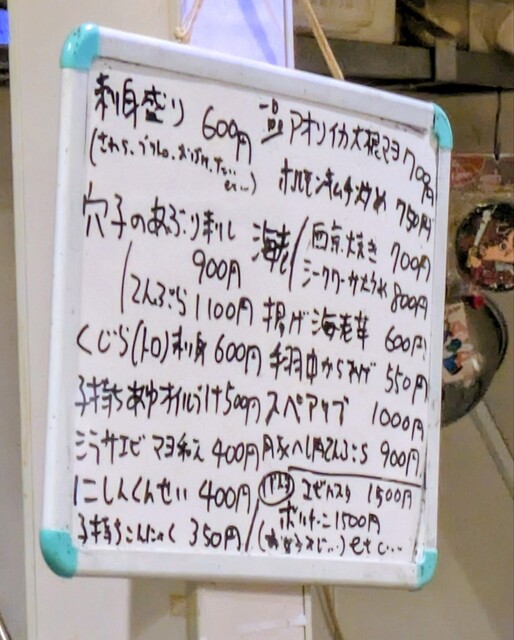 刺身盛り 600円
(さわら、
穴子のあぶり刺し 900円
てんぷら 1100円
くじら(トロ)刺身 600円
子持ちあゆオイルづけ 500円
シラサエビ マヨ和え 400円
にしんくんせい 400円
子持ちこんにゃく 350円
一品 アオリイカ大根マヨ 700円
ホルモンキムチ炒め 750円
海老 西京焼き 700円
800円
揚げ海老芋 600円
手羽中からあげ 550円
スペアリブ 1000円
900円
パスタ エビパスタ 1500円
1500円
etc...